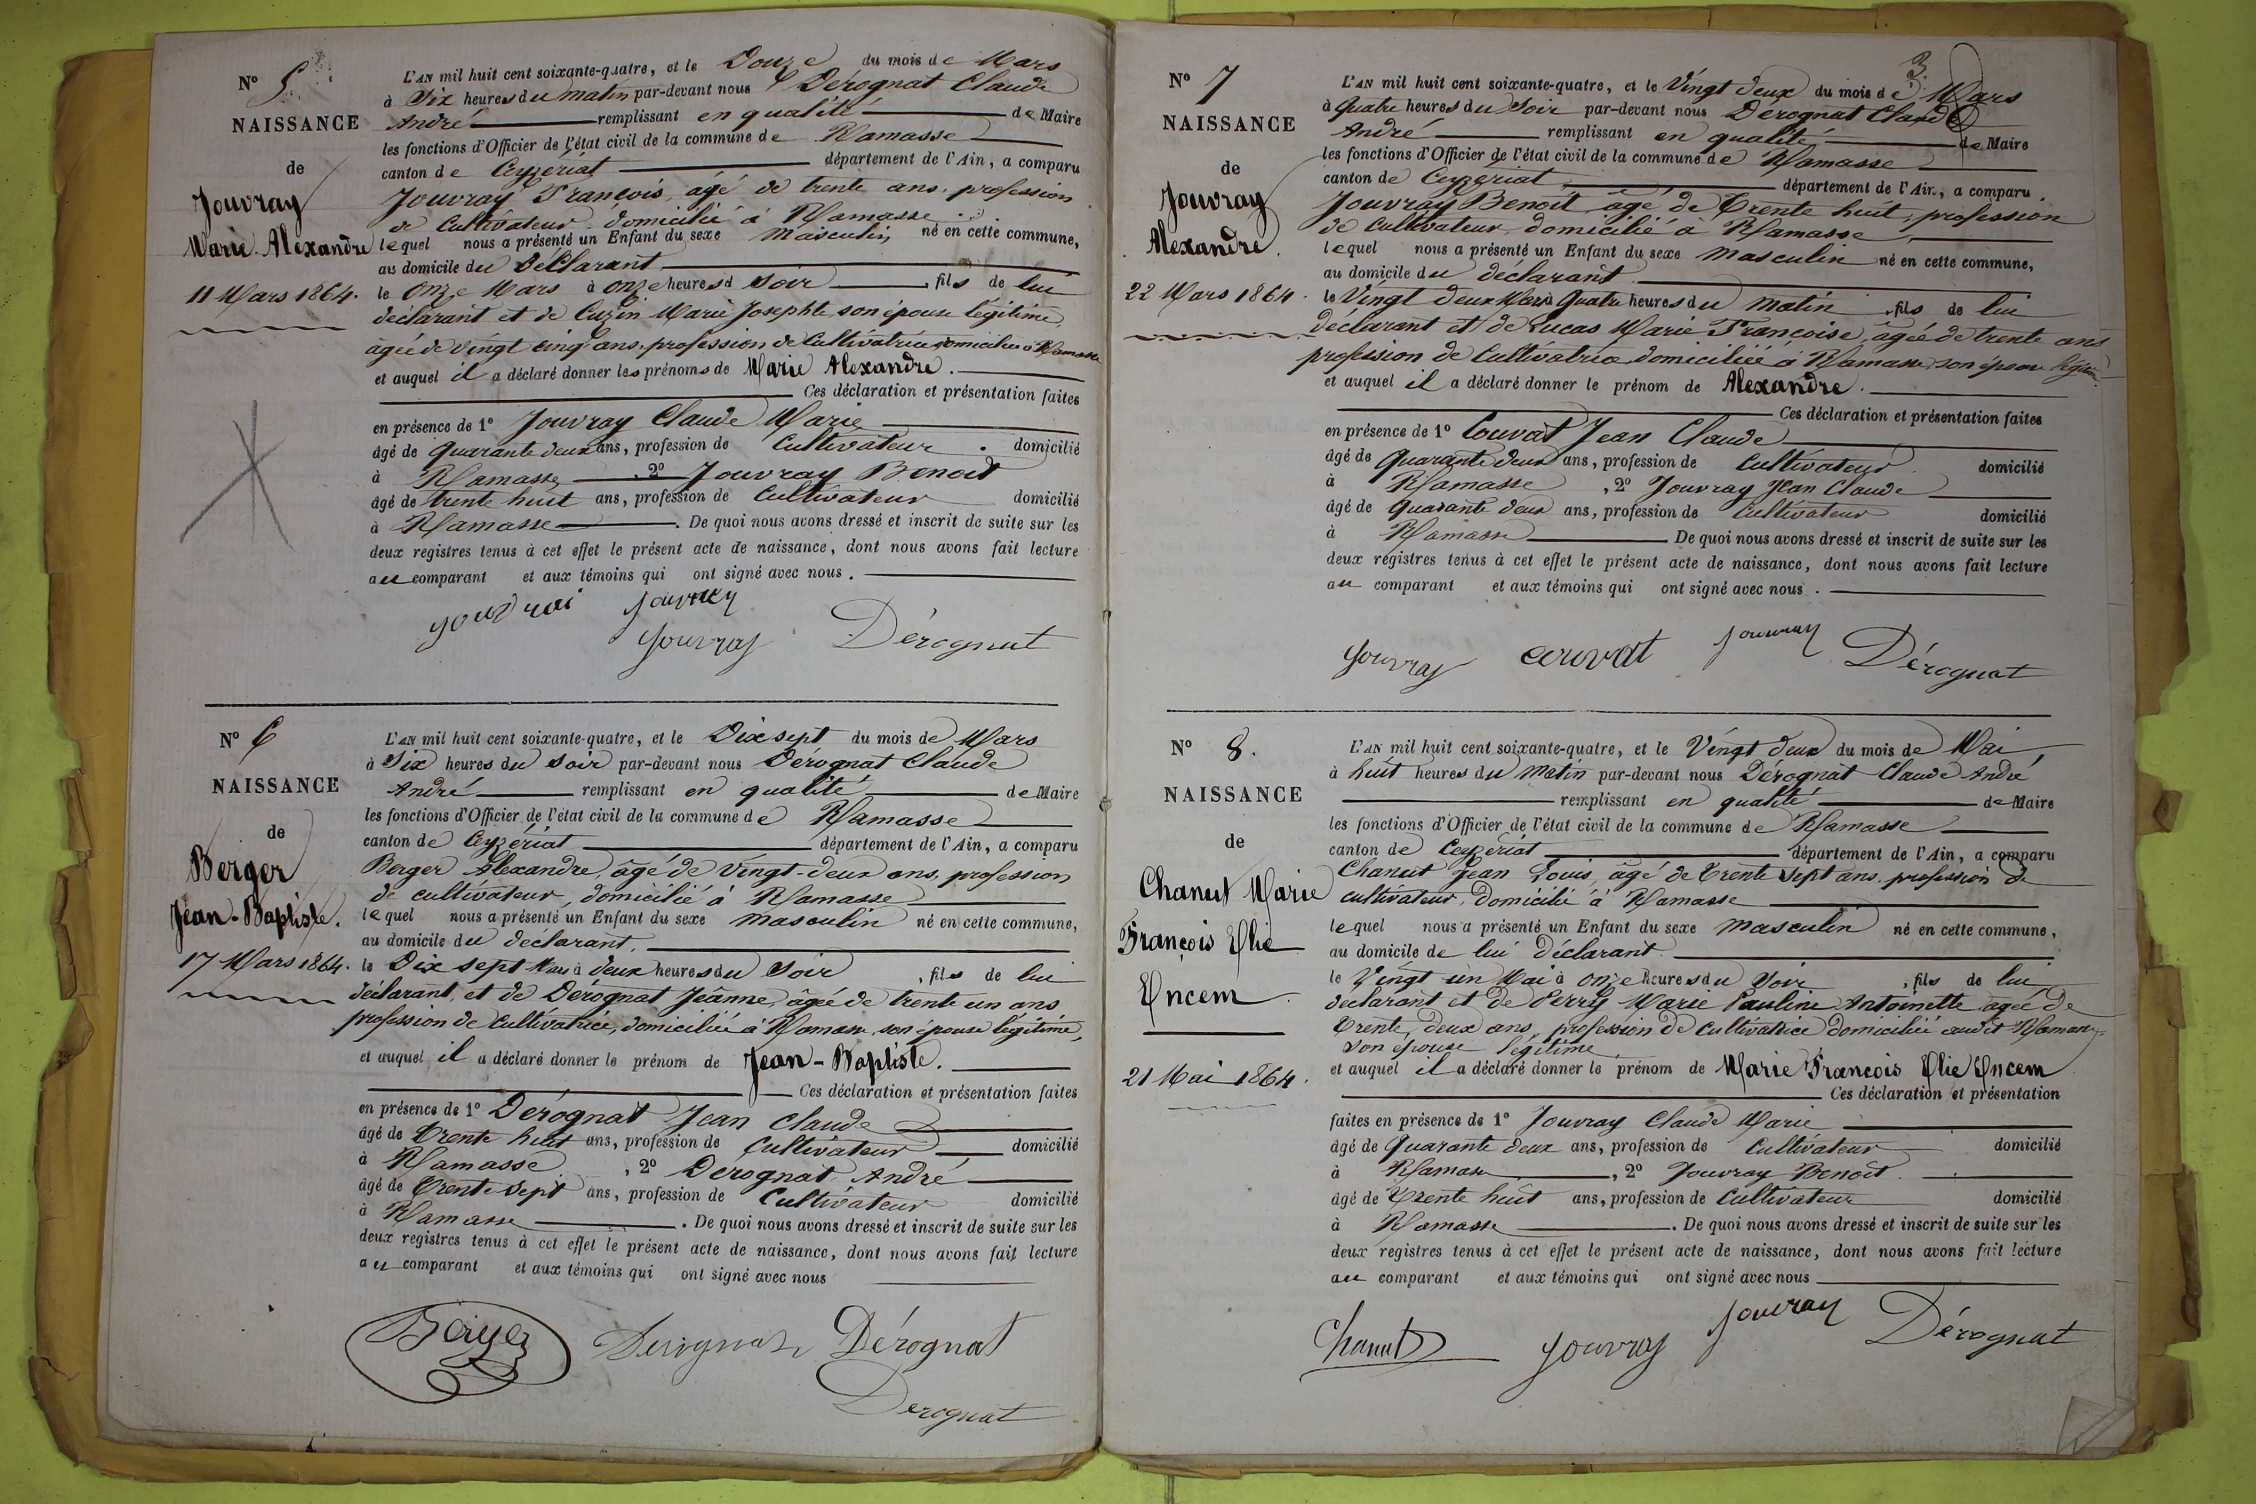 N° 5.
NAISSANCE
de
Jouvray
Marie Alexandre
11 Mars 1864.
L'AN mil huit cent soixante-quatre, et le Douze du mois de Mars
à Six heures du matin par-devant nous Dérognat Claude
André remplissant en qualité de Maire
les fonctions d'Officier de l'état civil de la commune de Ramasse
canton de Ceyzériat département de l'Ain, a comparu
Jouvray François, âgé de trente ans, profession
de Cultivateur, domicilié à Ramasse
lequel nous a présenté un Enfant du sexe Masculin né en cette commune,
au domicile du Déclarant
le Onze Mars à onze heures d soir fils de lui
déclarant et de Cuzin Marie Josephte, son épouse légitime,
âgée de vingt cinq ans, profession de Cultivatrice domiciliée à Ramasse
et auquel il a déclaré donner les prénoms de Marie Alexandre.
Ces déclaration et présentation faites
en présence de 1° Jouvray Claude Marie
âgé de quarante deux ans, profession de Cultivateur domicilié
à Ramasse, 2° Jouvray Benoit
âgé de trente huit ans, profession de Cultivateur domicilié
à Ramasse. De quoi nous avons dressé et inscrit de suite sur les
deux registres tenus à cet effet le présent acte de naissance, dont nous avons fait lecture
au comparant et aux témoins qui ont signé avec nous.
Jouvray
Jouvray Dérognat
N° 6
NAISSANCE
de
Berger
Jean-Baptiste.
17 Mars 1864.
L'AN mil huit cent soixante-quatre, et le Dix sept du mois de Mars
à Six heures du soir par-devant nous Dérognat Claude
André remplissant en qualité de Maire
les fonctions d'Officier de l'état civil de la commune de Ramasse
canton de Ceyzériat département de l'Ain, a comparu
Berger Alexandre, âgé de vingt-deux ans, profession
de cultivateur, domicilié à Ramasse
lequel nous a présenté un Enfant du sexe masculin né en cette commune,
au domicile du déclarant,
le Dix sept Mars à deux heures du soir, fils de lui
déclarant, et de Dérognat Jeanne, âgée de trente un ans
profession de Cultivatrice, domiciliée à Ramasse, son épouse légitime,
et auquel il a déclaré donner le prénom de Jean-Baptiste.
Ces déclaration et présentation faites
en présence de 1° Dérognat Jean Claude
âgé de Trente huit ans, profession de Cultivateur domicilié
à Ramasse, 2° Dérognat André
âgé de Trente sept ans, profession de Cultivateur domicilié
à Ramasse. De quoi nous avons dressé et inscrit de suite sur les
deux registres tenus à cet effet le présent acte de naissance, dont nous avons fait lecture
au comparant et aux témoins qui ont signé avec nous
Berger Dérognat
Derognat
3.
N° 7
NAISSANCE
de
Jouvray
Alexandre.
22 Mars 1864.
L'AN mil huit cent soixante-quatre, et le Vingt deux du mois de Mars
à Quatre heures du soir par-devant nous Dérognat Claude
André remplissant en qualité de Maire
les fonctions d'Officier de l'état civil de la commune de Ramasse
canton de Ceyzériat département de l'Ain, a comparu
Jouvray Benoit âgé de Trente huit, profession
de Cultivateur, domicilié à Ramasse,
lequel nous a présenté un Enfant du sexe masculin né en cette commune,
au domicile du déclarant
le Vingt deux Mars à Quatre heures du matin, fils de lui
déclarant et de Lucas Marie Françoise, âgée de trente ans
profession de Cultivatrice domiciliée à Ramasse, son épouse légitime
et auquel il a déclaré donner le prénom de Alexandre.
Ces déclaration et présentation faites
en présence de 1° Couvat Jean Claude
âgé de Quarante deux ans, profession de Cultivateur domicilié
à Ramasse, 2° Jouvray Jean Claude
âgé de Quarante deux ans, profession de Cultivateur domicilié
à Ramasse De quoi nous avons dressé et inscrit de suite sur les
deux registres tenus à cet effet le présent acte de naissance, dont nous avons fait lecture
au comparant et aux témoins qui ont signé avec nous.
Jouvray couvat Jouvray Dérognat
N° 8.
NAISSANCE
de
Chanut Marie
François Elie
Encem
21 Mai 1864.
L'AN mil huit cent soixante-quatre, et le Vingt deux du mois de Mai
à huit heures du matin par-devant nous Dérognat Claude André
remplissant en qualité de Maire
les fonctions d'Officier de l'état civil de la commune de Ramasse
canton de Ceyzériat département de l'Ain, a comparu
Chanut Jean Louis, âgé de Trente sept ans, profession de
cultivateur, domicilié à Ramasse
lequel nous a présenté un Enfant du sexe masculin né en cette commune,
au domicile de lui déclarant
le Vingt un Mai à onze heures du soir, fils de lui
déclarant et de Perry Marie Pauline Antoinette âgée de
Trente deux ans, profession de cultivatrice domiciliée audit Ramasse
son épouse légitime
et auquel il a déclaré donner le prénom de Marie François Elie Encem
Ces déclaration et présentation
faites en présence de 1° Jouvray Claude Marie
âgé de Quarante deux ans, profession de Cultivateur domicilié
à Ramasse, 2° Jouvray Benoit
âgé de Trente huit ans, profession de Cultivateur domicilié
à Ramasse. De quoi nous avons dressé et inscrit de suite sur les
deux registres tenus à cet effet le présent acte de naissance, dont nous avons fait lecture
au comparant et aux témoins qui ont signé avec nous
Chanut Jouvray Jouvray Dérognat